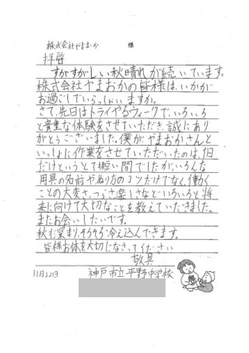 株式会社やまおか 様
拝啓
すがすがしい秋晴れが続いています。
株式会社やまおかの皆様は、いかが
お過ごしでいらっしゃいますか。
さて、先日はトライやるウィークでいろいろ
と貴重な体験をさせていただき、誠にあり
がとうございました。僕がやまおかさんと
いっしょに作業をさせていただいたのは、1日
だけというとても短い間でしたが、いろんな
用具の名前や釣り方のコツだけでなく働く
ことの大変さ、つらさ楽しさなどいろいろと将
来に向けて大切なことを教えていただきました。
またお会いしたいです。
秋も深まりそろそろ冷え込んできます。
皆様お体を大切になさってください
敬具
11月22日 神戸市立平野中学校